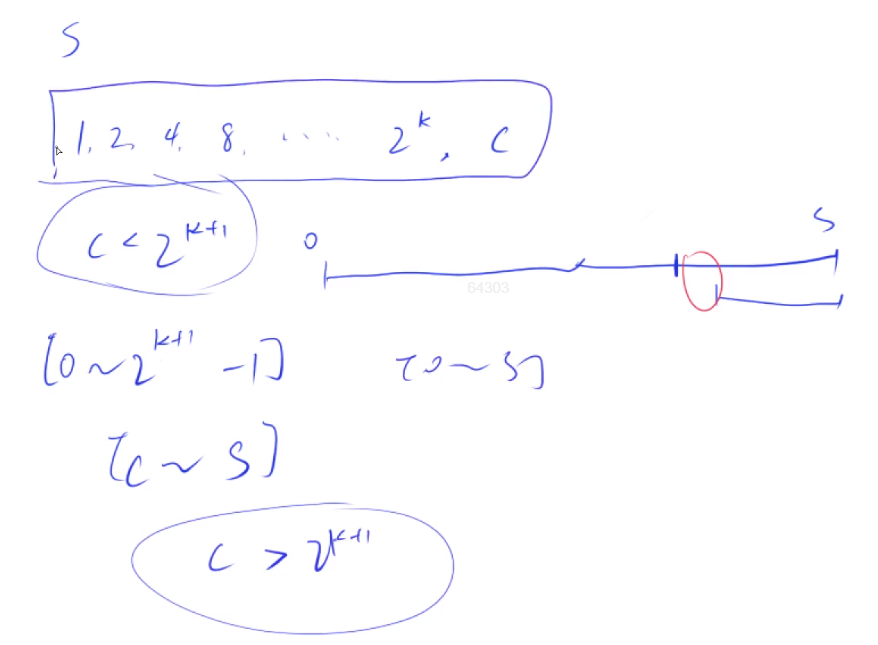 S
1, 2, 4, 8, ..... 2^k, C
C < 2^{k+1}
0
S
64303
[0 ~ 2^{k+1} -1]   [0 ~ S]
[C ~ S]
C > 2^{k+1}